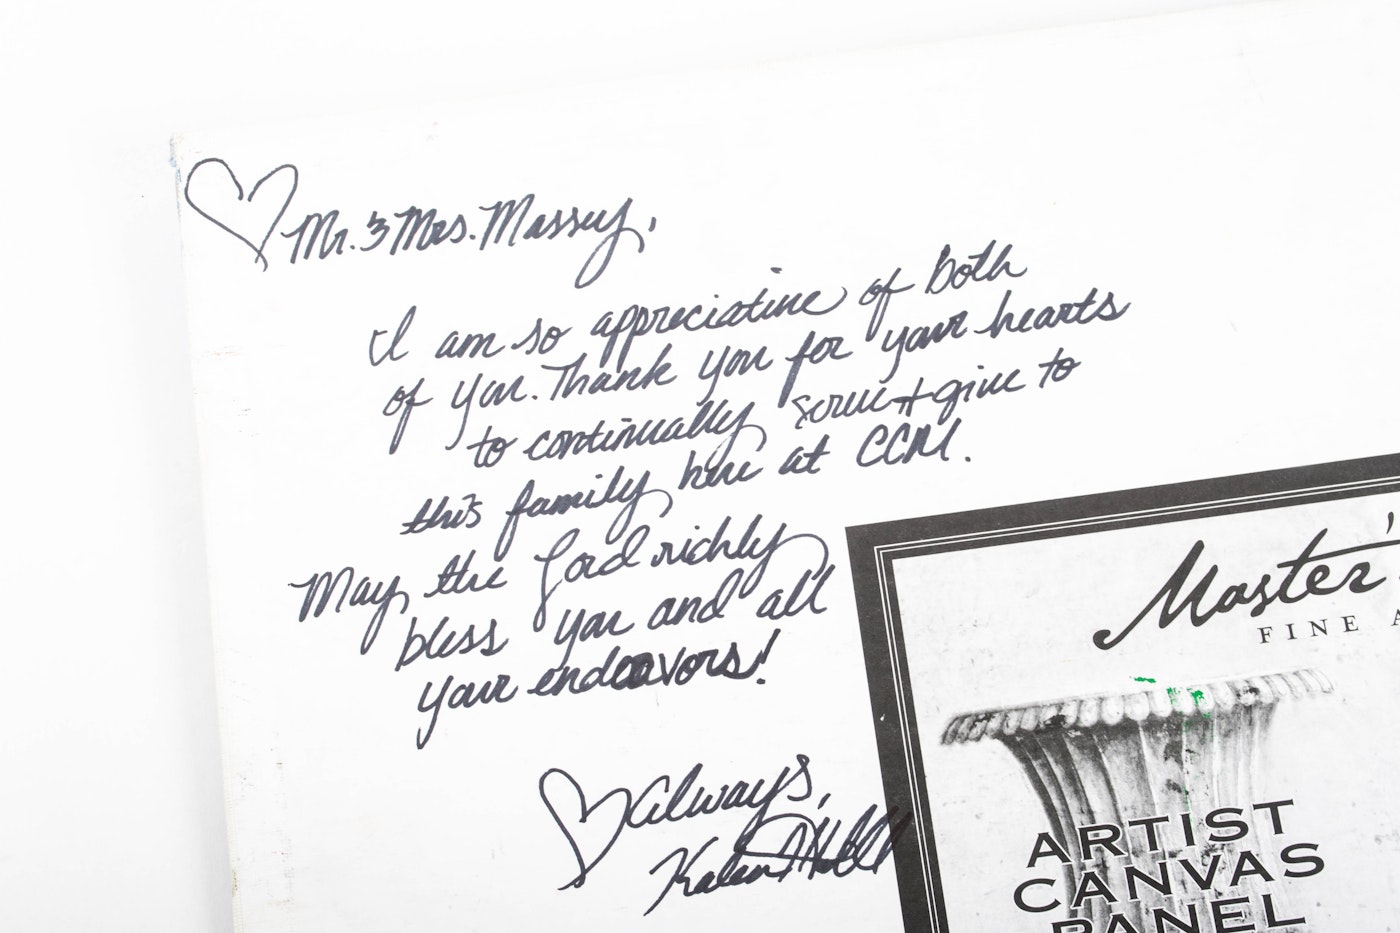 Mr. & Mrs. Massey,
I am so appreciative of both
of you. Thank you for your hearts
to continually serve + give to
this family here at CCM.
May the Lord richly
bless you and all
your endeavors!
Always,
Master's
FINE A
ARTIST
CANVAS
PANEL